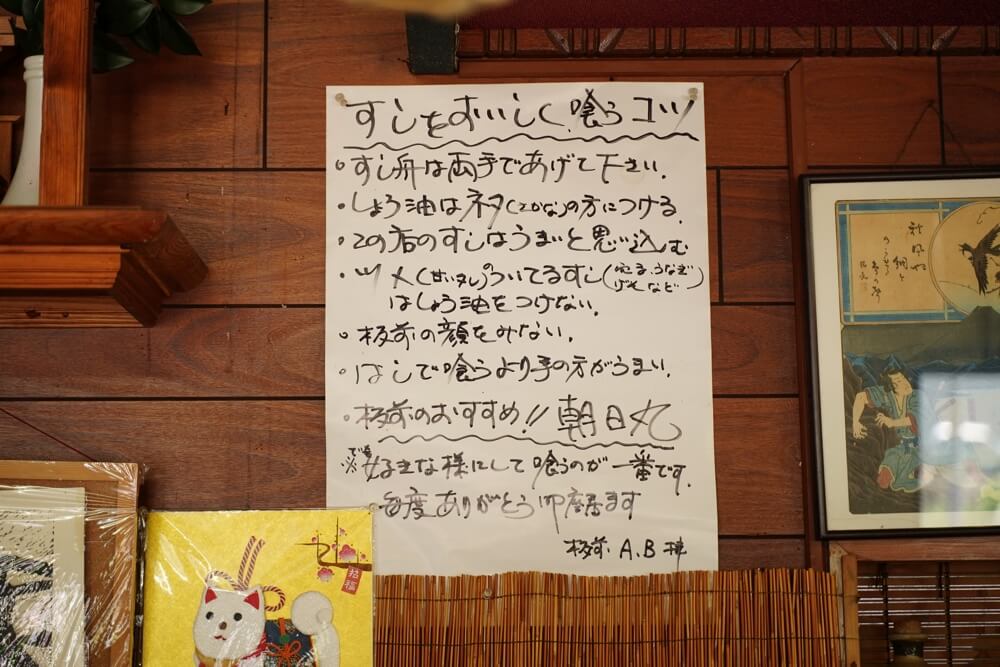 すしをおいしく喰うコツ
・すし舟は両手であげて下さい.
・しょう油はネタ(さかな)の方につける.
・この店のすしはうまいと思い込む
・ツメ(甘いタレ)のついてるすし(穴子.うなぎ げそなど)
はしょう油をつけない.
・板前の顔をみない.
・はしで喰うより手の方がうまい.
・板前のおすすめ!! 朝日丸
※でも好きな様にして喰うのが一番です.
毎度ありがとう御座居ます
板前 A.B
招福